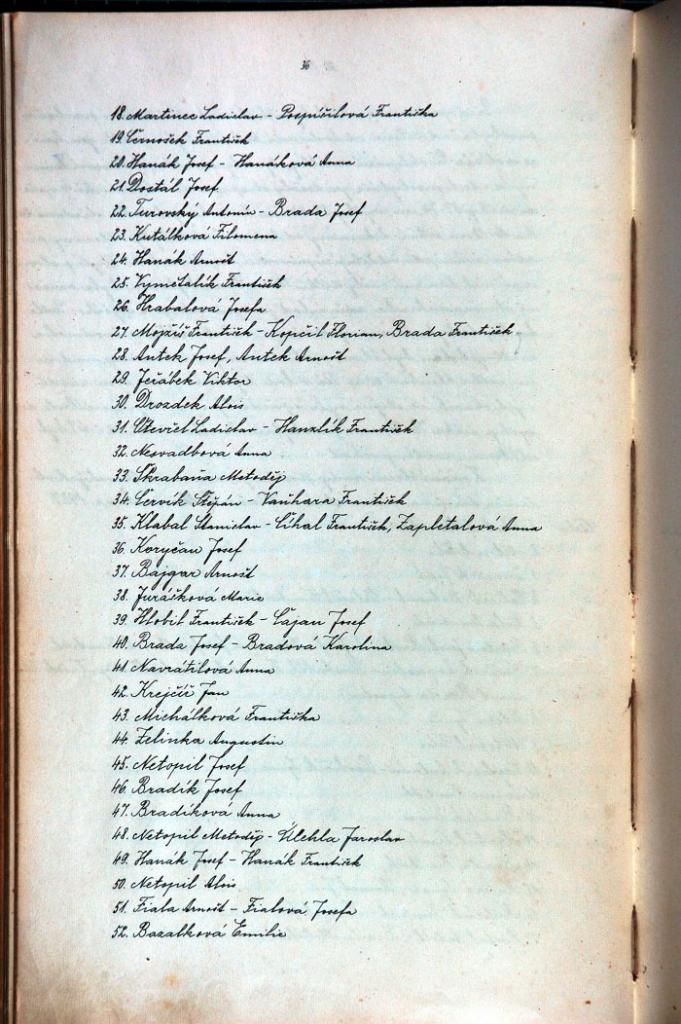 18. Martinec Ladislav - Pospíšilová Františka
19. Černošek František
20. Hanák Josef - Hanáková Anna
21. Dostál Josef
22. Turovský Antonín - Brada Josef
23. Kutálková Filomena
24. Hanák Arnošt
25. Vymětalík František
26. Hrabalová Josefa
27. Mojžíš František - Kopčil Florian, Brada František
28. Antek Josef, Antek Arnošt
29. Jeřábek Viktor
30. Drozdek Alois
31. Otevřel Ladislav - Hanzlík František
32. Nesvadbová Anna
33. Škrabana Metoděj
34. Červík Štěpán - Vaňhara František
35. Klabal Stanislav - Cíhal František, Zapletalová Anna
36. Koryčan Josef
37. Bajgar Arnošt
38. Juráčková Marie
39. Hlobil František - Čajan Josef
40. Brada Josef - Bradová Karolina
41. Navrátilová Anna
42. Krejčíř Jan
43. Michálková Františka
44. Zelinka Augustin
45. Netopil Josef
46. Bradík Josef
47. Bradíková Anna
48. Netopil Metoděj - Úlehla Jaroslav
49. Hanák Josef - Hanák František
50. Netopil Alois
51. Fiala Arnošt - Fialová Josefa
52. Bazalková Emilie